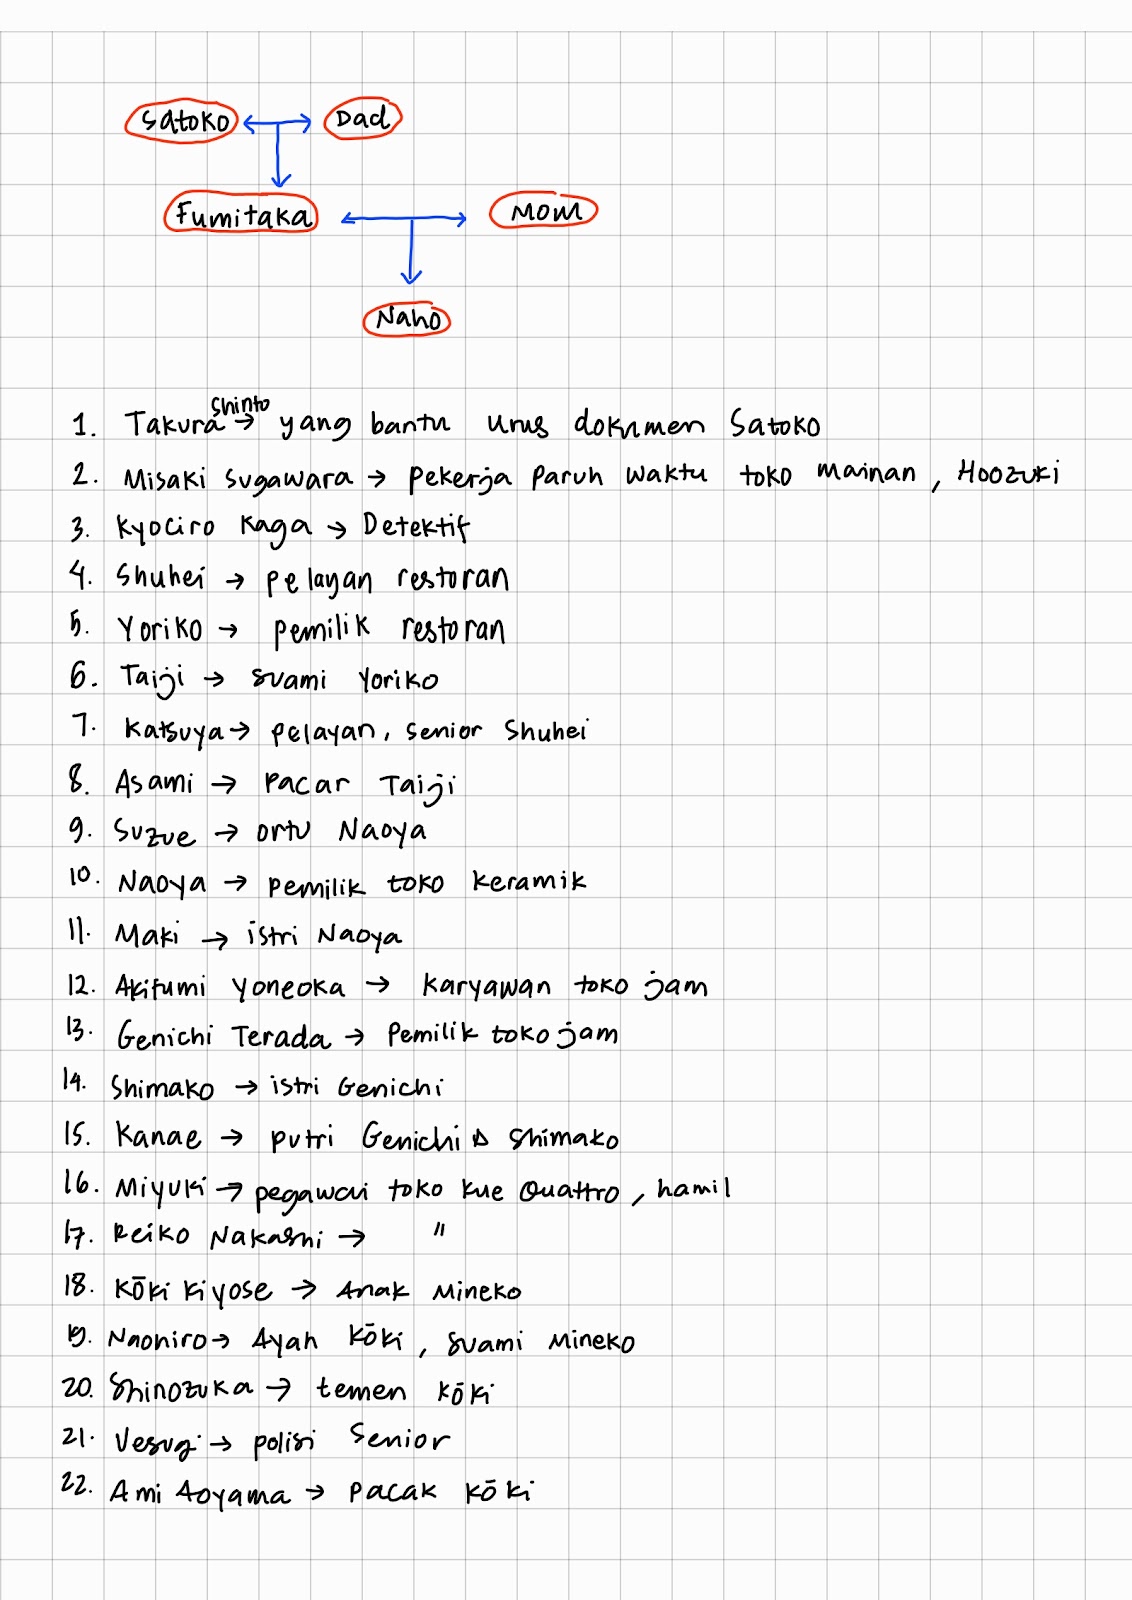 Satoko ↔ Dad
Fumitaka ↔ Mom
Naho
1. Takura Shinto → yang bantu urus dokumen Satoko
2. Misaki Sugawara → pekerja paruh waktu toko mainan, Hoozuki
3. Kyociro Kaga → Detektif
4. Shuhei → pelayan restoran
5. Yoriko → pemilik restoran
6. Taiji → suami Yoriko
7. Katsuya → pelayan, senior Shuhei
8. Asami → Pacar Taiji
9. Suzue → ortu Naoya
10. Naoya → pemilik toko keramik
11. Maki → istri Naoya
12. Akifumi Yoneoka → karyawan toko jam
13. Genichi Terada → Pemilik toko jam
14. Shimako → istri Genichi
15. Kanae → putri Genichi & Shimako
16. Miyuki → pegawai toko kue Quattro, hamil
17. Reiko Nakashi → "
18. Kōki Kiyose → Anak Mineko
19. Naohiro → Ayah Kōki, suami Mineko
20. Shinozuka → temen Kōki
21. Uesugi → polisi Senior
22. Ami Aoyama → pacak Kōki